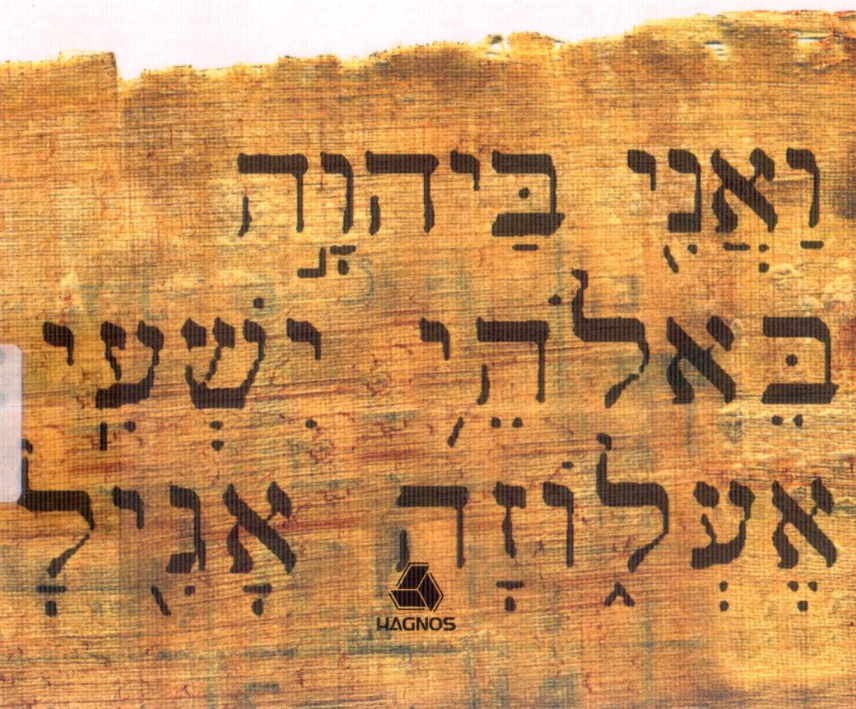 וַאֲנִ֖י בַּיהוָ֣ה
בֵּאלֹהֵ֥י יִשְׁעִֽי
אֶעְל֑וֹזָה אָגִ֖ילָ
HAGNOS